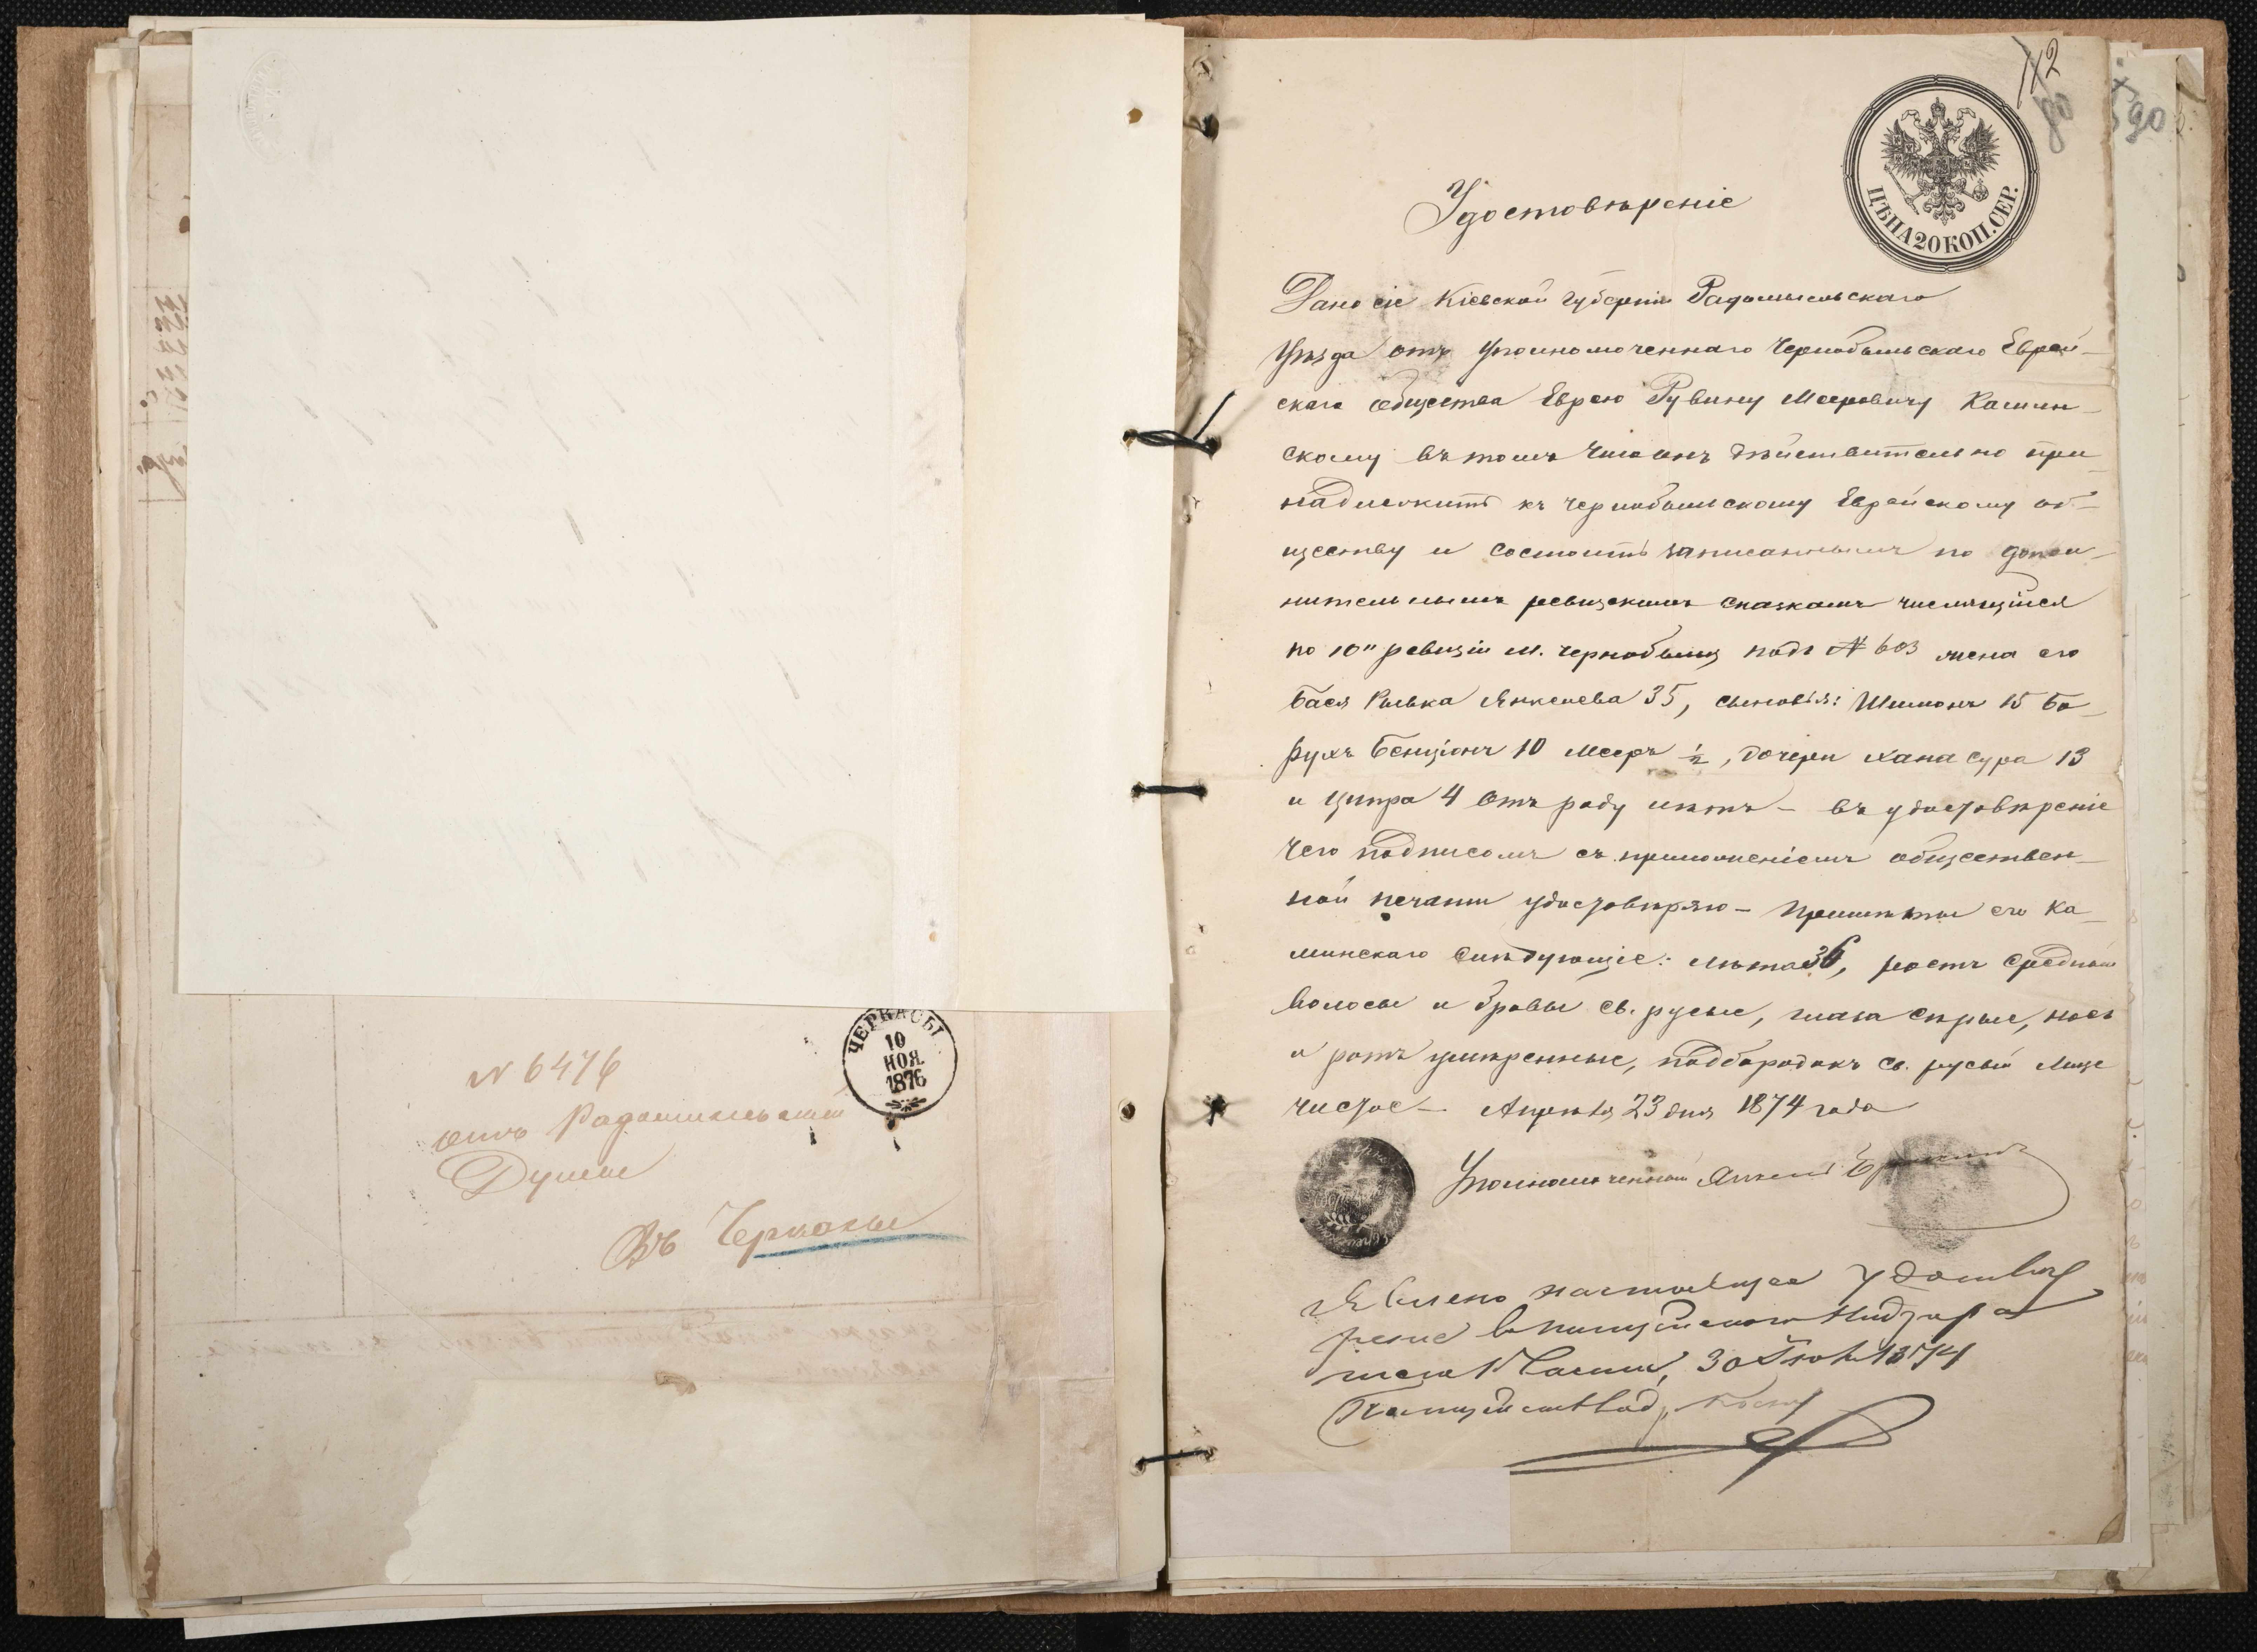 ЧЕРКАСЫ
10
НОЯ.
1876
N 6476
отъ Радомысльской
Думы
Въ Черкасы
90
ЦѢНА 20 КОП. СЕР.
Удостовѣреніе
Дано сіе Кіевской губерніи Радомысльскаго
уѣзда отъ уполномоченнаго Чернобыльскаго Еврей-
скаго общества Еврею Рувину Мееровичу Камин-
скому въ томъ что онъ дѣйствительно при
надлежитъ къ Чернобыльскому Еврейскому об-
ществу и состоитъ записаннымъ по допол-
нительнымъ ревизскимъ сказкамъ числящійся
по 10й ревизіи м. Чернобыля подъ № 603 жена его
Бася Рывка Янкелева 35, сыновья: Шимонъ 15 Бо-
рухъ Бенціонъ 10 Мееръ ½, дочери Хана Сура 13
и Ципра 4 отъ роду лѣтъ - въ удостовѣреніе
чего подписомъ съ приложеніемъ обществен-
ной печати удостовѣряю - Примѣты его Ка-
минскаго слѣдующіе: лѣта 36, ростъ средній
волосы и бровы св. русые, глаза сѣрые, носъ
и ротъ умѣренные, подбородокъ св. русый лице
чистое - Апрѣля 23 дня 1874 года
Уполномоченный Янкель
Явлено настоящее удостовѣ
реніе в полицейскаго Надзира
теля 1 Части, 30 1874
Полицейскій Надз.